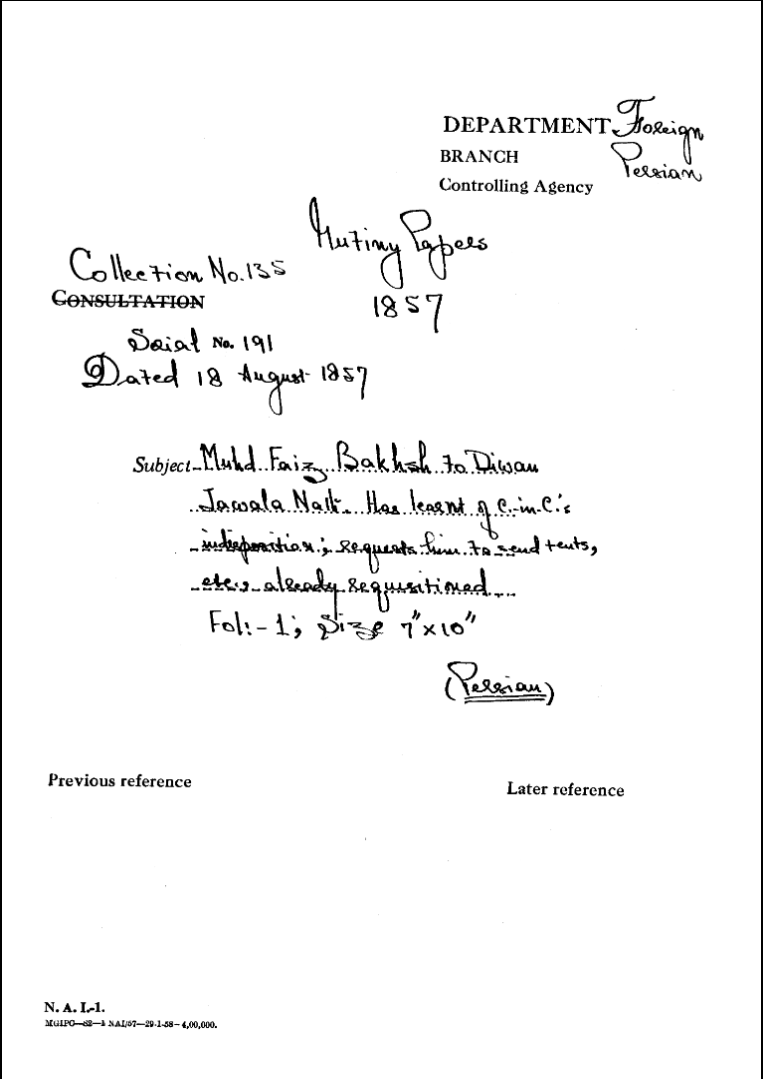 DEPARTMENT Foreign
BRANCH Persian
Controlling Agency
Mutiny Papers
1857
Collection No. 135
CONSULTATION
Serial No. 191
Dated 18 August 1857
Subject Muhd Faiz Bakhsh to Diwan
Jawala Nath. Has learnt of C.-in-C.'s
indisposition; requests him to send tents,
etc., already requisitioned
Fol:- 1; Size 7"x10"
(Persian)
Previous reference
Later reference
N. A. I.-1.
MGIPC—82—1 NAI/57—29-1-58—4,00,000.